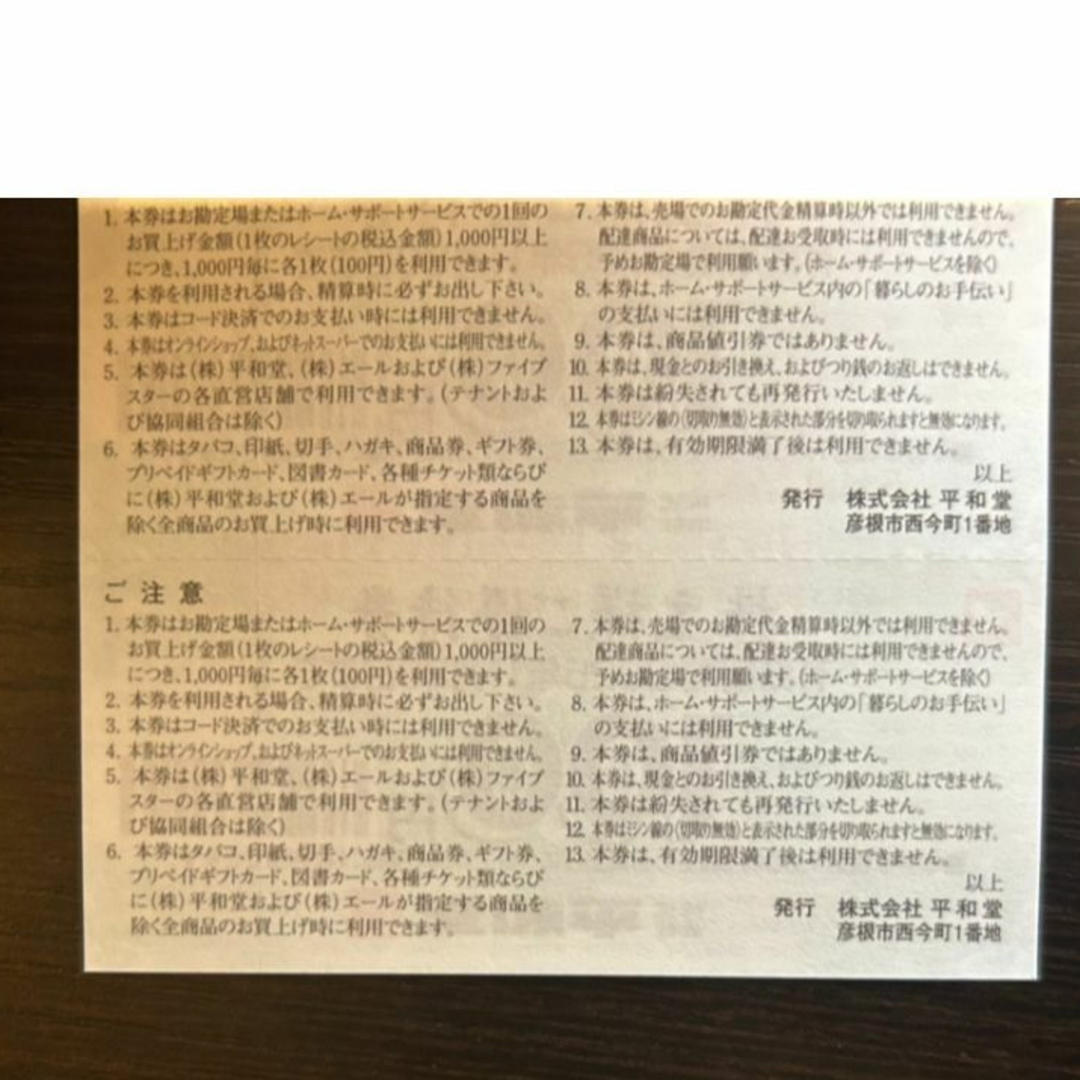 1. 本券はお勘定場またはホーム・サポートサービスでの1回の
お買上げ金額(1枚のレシートの税込金額)1,000円以上
につき、1,000円毎に各1枚(100円)を利用できます。
2. 本券を利用される場合、精算時に必ずお出し下さい。
3. 本券はコード決済でのお支払い時には利用できません。
4. 本券はオンラインショップ、およびネットスーパーでのお支払いには利用できません。
5. 本券は(株)平和堂、(株)エールおよび(株)ファイブ
スターの各直営店舗で利用できます。(テナントおよ
び協同組合は除く)
6. 本券はタバコ、印紙、切手、ハガキ、商品券、ギフト券、
プリペイドギフトカード、図書カード、各種チケット類ならび
に(株)平和堂および(株)エールが指定する商品を
除く全商品のお買上げ時に利用できます。
7. 本券は、売場でのお勘定代金精算時以外では利用できません。
配達商品については、配達お受取時には利用できませんので、
予めお勘定場で利用願います。(ホーム・サポートサービスを除く)
8. 本券は、ホーム・サポートサービス内の「暮らしのお手伝い」
の支払いには利用できません。
9. 本券は、商品値引券ではありません。
10. 本券は、現金とのお引き換え、およびつり銭のお返しはできません。
11. 本券は紛失されても再発行いたしません。
12. 本券はミシン線の(切取り無効)と表示された部分を切り取られますと無効になります。
13. 本券は、有効期限満了後は利用できません。
以上
発行 株式会社 平和堂
彦根市西今町1番地
ご注意
1. 本券はお勘定場またはホーム・サポートサービスでの1回の
お買上げ金額(1枚のレシートの税込金額)1,000円以上
につき、1,000円毎に各1枚(100円)を利用できます。
2. 本券を利用される場合、精算時に必ずお出し下さい。
3. 本券はコード決済でのお支払い時には利用できません。
4. 本券はオンラインショップ、およびネットスーパーでのお支払いには利用できません。
5. 本券は(株)平和堂、(株)エールおよび(株)ファイブ
スターの各直営店舗で利用できます。(テナントおよ
び協同組合は除く)
6. 本券はタバコ、印紙、切手、ハガキ、商品券、ギフト券、
プリペイドギフトカード、図書カード、各種チケット類ならび
に(株)平和堂および(株)エールが指定する商品を
除く全商品のお買上げ時に利用できます。
7. 本券は、売場でのお勘定代金精算時以外では利用できません。
配達商品については、配達お受取時には利用できませんので、
予めお勘定場で利用願います。(ホーム・サポートサービスを除く)
8. 本券は、ホーム・サポートサービス内の「暮らしのお手伝い」
の支払いには利用できません。
9. 本券は、商品値引券ではありません。
10. 本券は、現金とのお引き換え、およびつり銭のお返しはできません。
11. 本券は紛失されても再発行いたしません。
12. 本券はミシン線の(切取り無効)と表示された部分を切り取られますと無効になります。
13. 本券は、有効期限満了後は利用できません。
以上
発行 株式会社 平和堂
彦根市西今町1番地